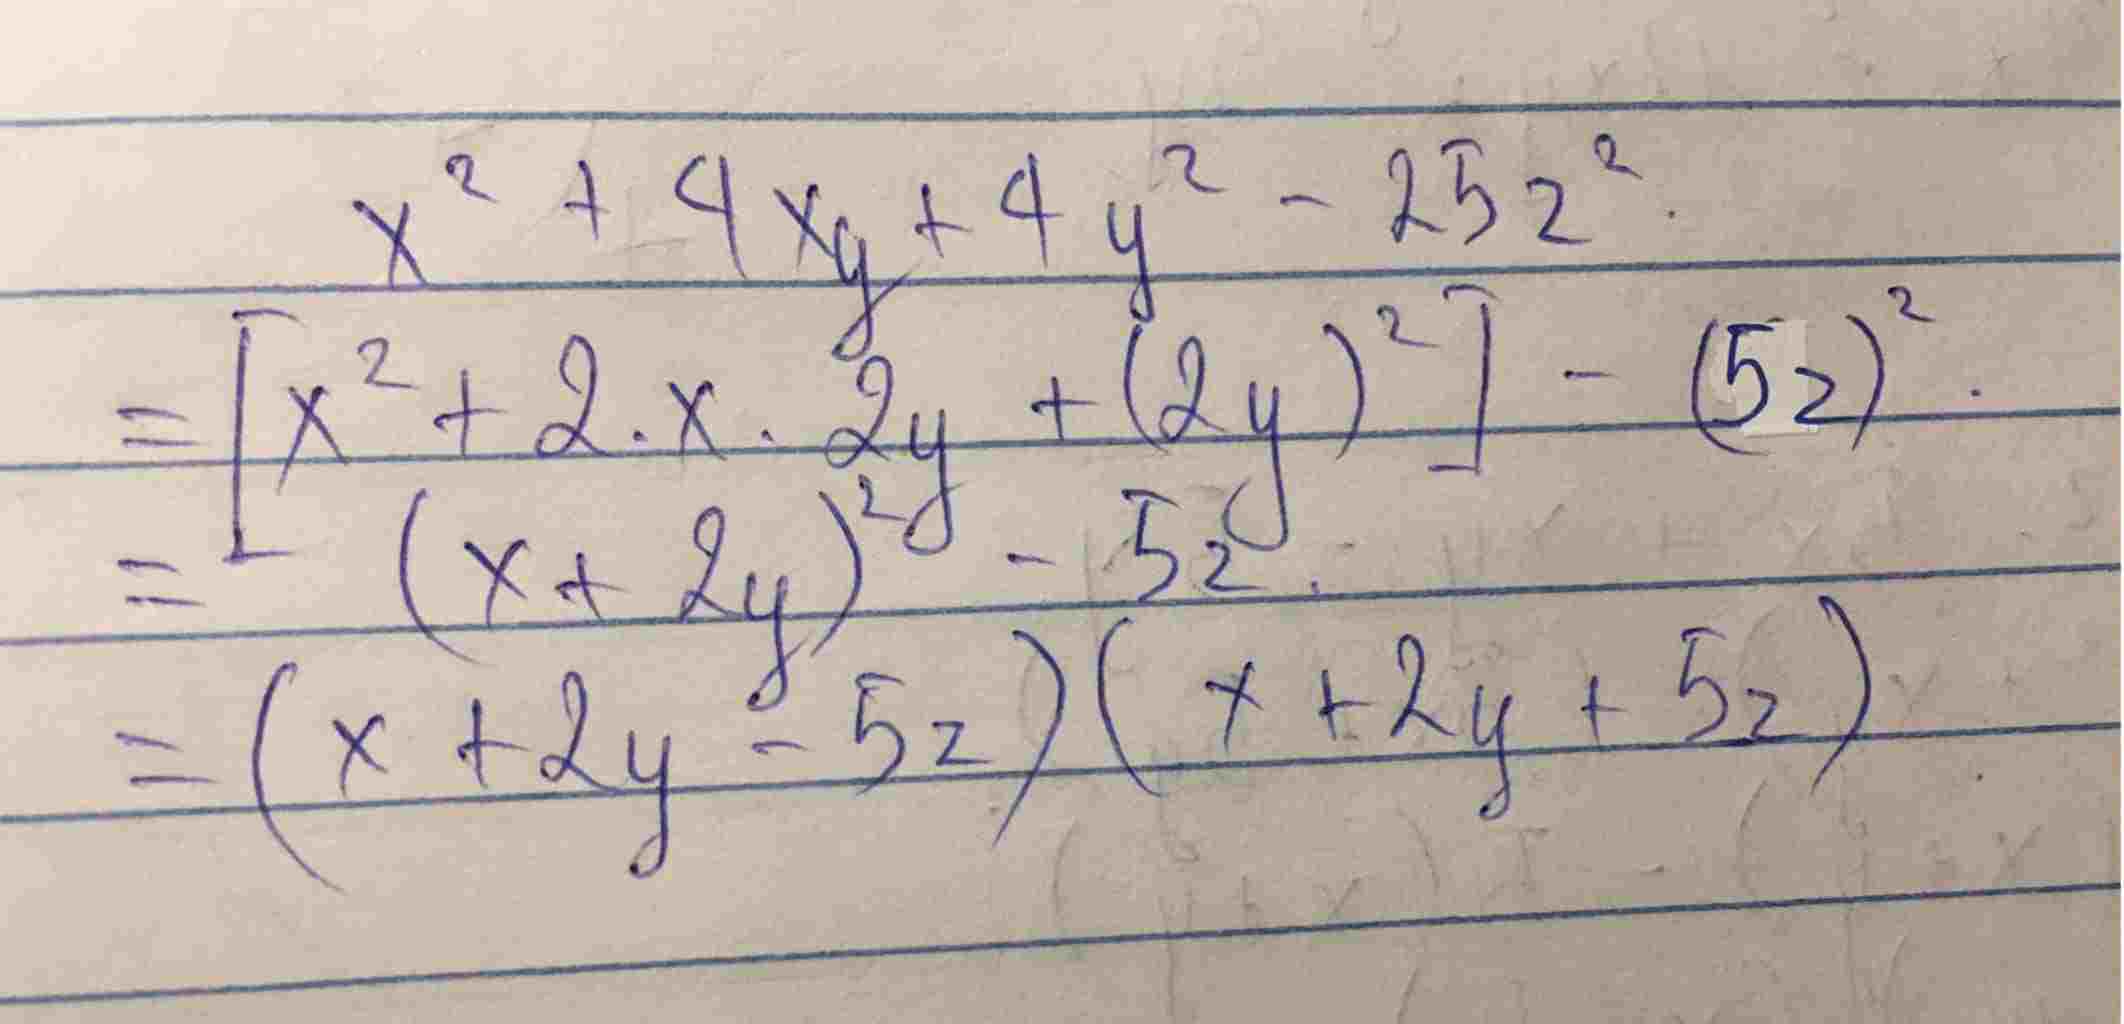 x² + 4xy + 4y² - 25z².
= [x² + 2.x.2y + (2y)²] - (5z)².
= (x + 2y)² - 5z.
= (x + 2y - 5z)(x + 2y + 5z).